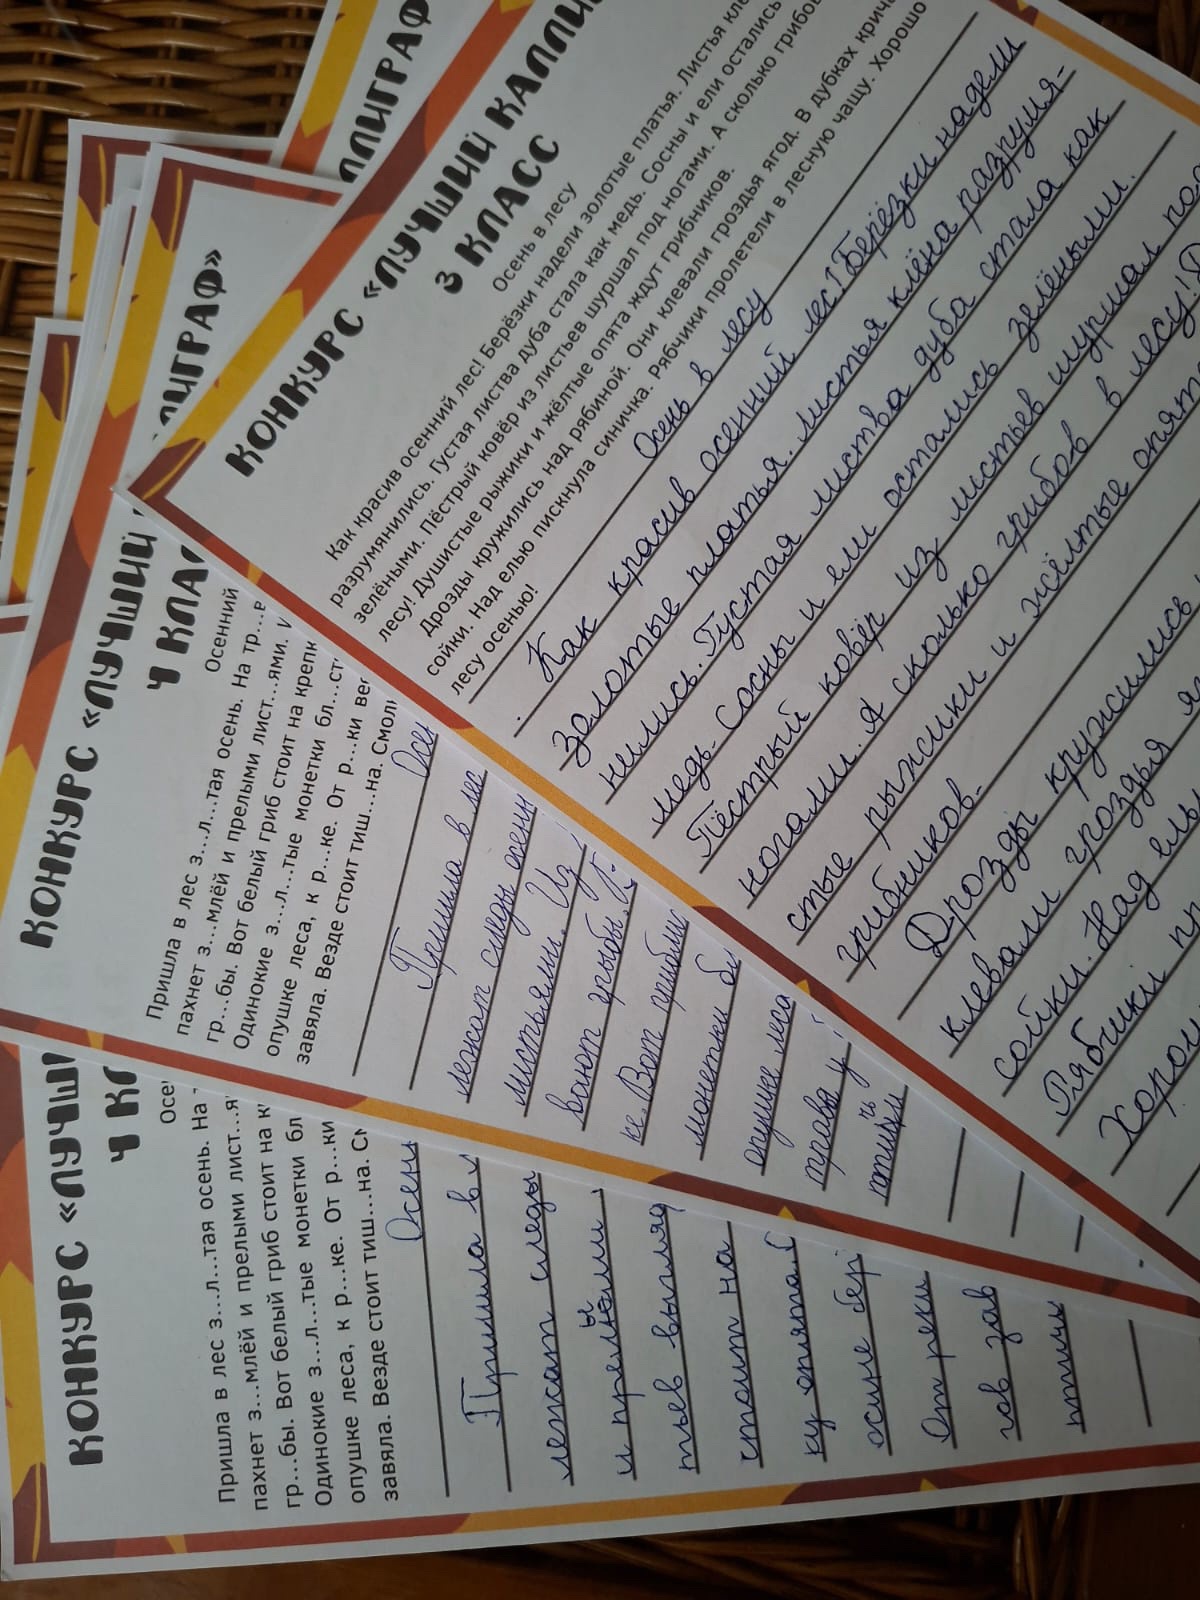 ЛЛИГРАФ
ЛИГРАФ»
КОНКУРС «ЛУЧШИЙ КАЛЛИ
3 КЛАСС
Осень в лесу
Как красив осенний лес! Берёзки надели золотые платья. Листья кле
разрумянились. Густая листва дуба стала как медь. Сосны и ели остались
зелёными. Пёстрый ковёр из листьев шуршал под ногами. А сколько грибов
лесу! Душистые рыжики и жёлтые опята ждут грибников.
Дрозды кружились над рябиной. Они клевали гроздья ягод. В дубках крич
сойки. Над елью пискнула синичка. Рябчики пролетели в лесную чащу. Хорошо
лесу осенью!
Осень в лесу
Как красив осенний лес! Берёзки надели
золотые платья. Листья клёна разрумя-
нились. Густая листва дуба стала как
медь. Сосны и ели остались зелёными.
Пёстрый ковёр из листьев шуршал под
ногами. А сколько грибов в лесу!
стые рыжики и жёлтые опят
грибников.
Дрозды кружились
клевали гроздья яг
сойки. Над ель
Рябчики пр
Хорош
КОНКУРС «ЛУЧШИЙ
4 КЛАС
Осенний
Пришла в лес з...л...тая осень. На тр...в
пахнет з...млёй и прелыми лист...ями.
гр...бы. Вот белый гриб стоит на крепк
Одинокие з...л...тые монетки бл...ст
опушке леса, к р...ке. От р...ки ве
завяла. Везде стоит тиш...на. Смол
Осен
Пришла в лес
лежат следы осенн
листьями. Из
вают грибы.
ке. Вот прибли
монетки бл
опушке леса
трава у
птичь
КОНКУРС «ЛУЧШ
4 КЛ
Осе
Пришла в лес з...л...тая осень. На
пахнет з...млёй и прелыми лист...я
гр...бы. Вот белый гриб стоит на к
Одинокие з...л...тые монетки бл
опушке леса, к р...ке. От р...ки
завяла. Везде стоит тиш...на. См
Осен
Пришла в л
лежат следы
и прелыми
тьев выгляд
стоит на
ку опята.
осине бер
От реки
гов зав
птичи